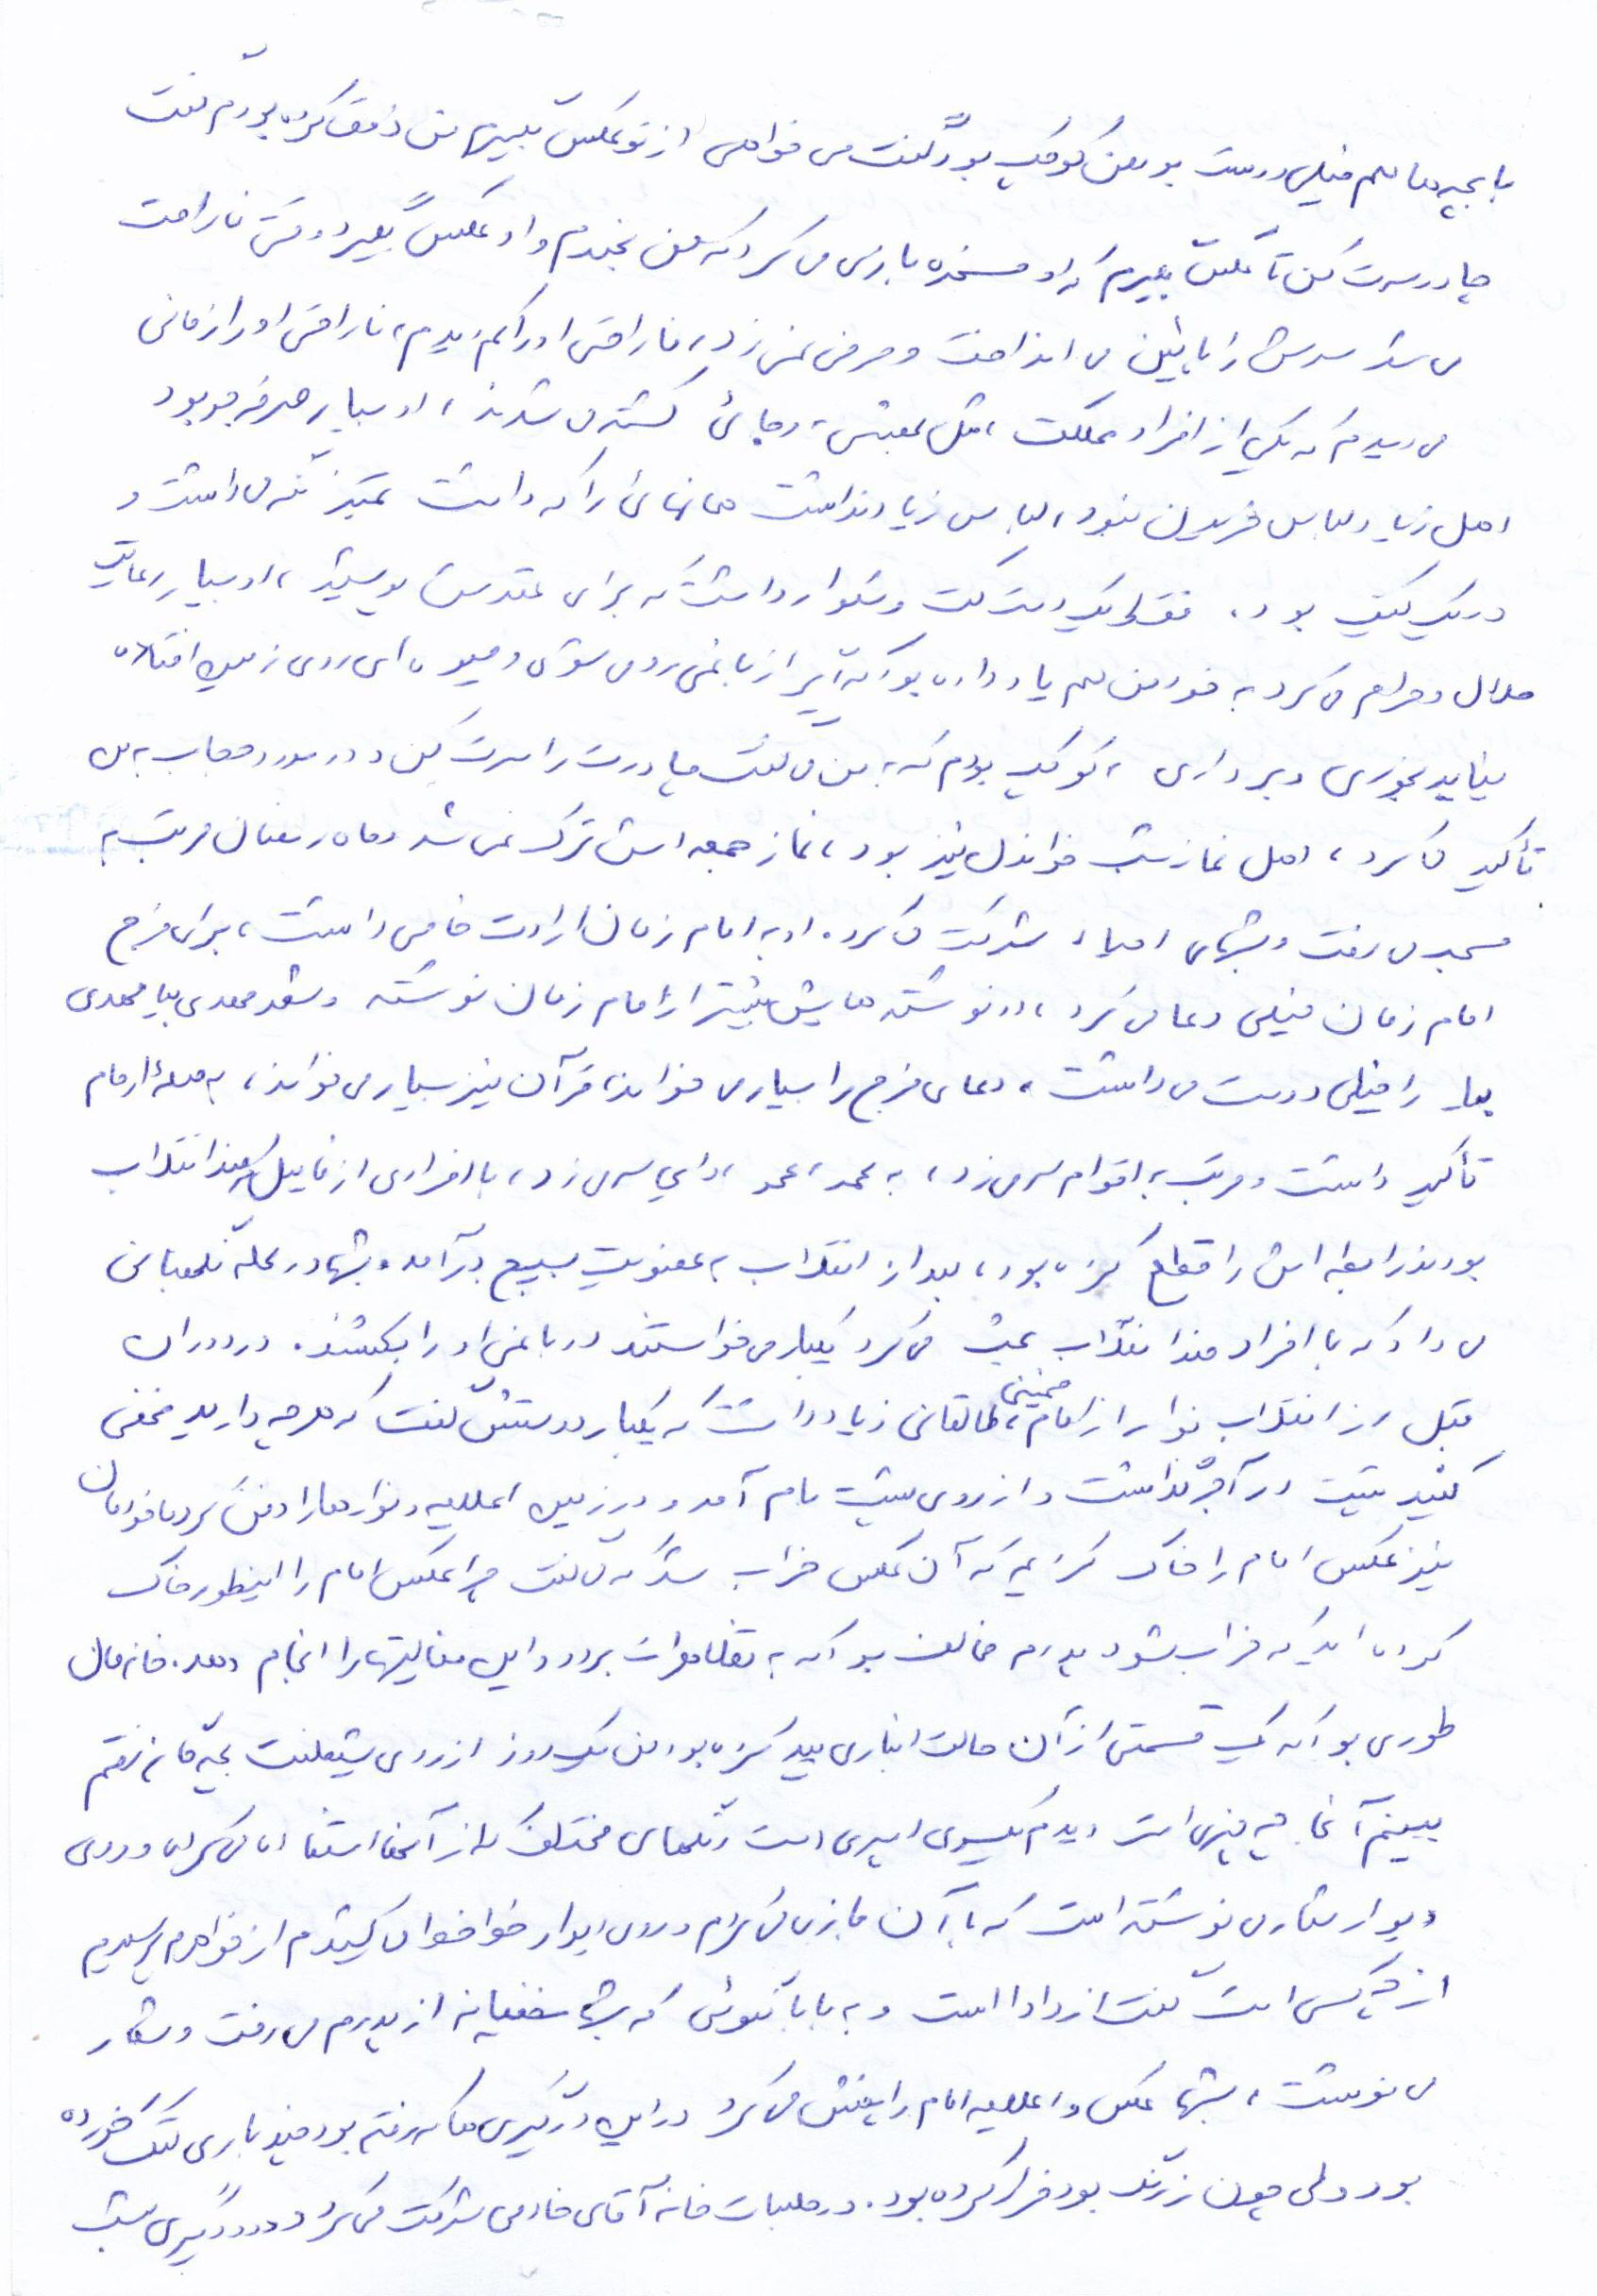 با بچه ها هم خیلی دوست بود من کوچک بودم گفت می خواهی از تو عکس بگیرم من ذوق کرده بودم گفت
چادر سرت کن تا عکست بگیرم که او مسخره بازی می کرد که من بخندم و او عکس بگیرد وقتی ناراحت
می شد سرش را پائین می انداخت و حرفی نمی زد، ناراحتی او را کم دیدم، ناراحتی او را زمانی
می دیدم که یکی از افراد مملکت، مثل بهشتی، رجائی کشته می شدند، او بسیار صرفه جو بود
اهل زیاد لباس خریدن نبود، لباس زیاد نداشت همانهائی را که داشت تمیز نگه می داشت و
در یک کیف بود. فقط یک دست کت و شلوار داشت که برای عقدش پوشید، او بسیار رعایت
حلال و حرام می کرد به خود من هم یاد داده بود که اگر از باغی رد می شوی و میوه ای روی زمین افتاده
نباید بخوری و برداری، کوچک بودم که به من می گفت چادرت را سرت کن و در مورد حجاب به من
تأکید می کرد، اهل نماز شب خواندن نیز بود، نماز جمعه اش ترک نمی شد و ماه رمضان مرتب به
مسجد می رفت و شبهای احیاء شرکت می کرد. او به امام زمان ارادت خاصی داشت، برای فرج
امام زمان خیلی دعا می کرد، در نوشته هایش بیشتر از امام زمان نوشته و شعر مهدی بیا مهدی
بیا را خیلی دوست می داشت، دعای فرج را بسیار می خواند، قرآن نیز بسیار می خواند، به صلۀ ارحام
تأکید داشت و مرتب به اقوام سر می زد، به عمه، عمو، دایی سر می زد، با افرادی از فامیل که ضد انقلاب
بودند رابطه اش را قطع کرده بود، بعد از انقلاب به عضویت بسیج درآمد و شبها در محله نگهبانی
می داد که با افراد ضد انقلاب بحث می کرد یکبار می خواستند در باغی او را بکشند. در دوران
قبل از انقلاب نوار از امام خمینی، طالقانی زیاد داشت که یکبار دوستش گفت که هر چه دارید مخفی
کنید شیت در آجر گذاشت و از روی پشت بام آمد و در زمین اعلامیه و نوارها را دفن کرد ما خودمان
نیز عکس امام را خاک کردیم که آن عکس خراب شد که می گفت چرا عکس امام را اینطور خاک
کرده اید که خراب شود پدرم مخالف بود که به تظاهرات برود و این فعالیتها را انجام دهد. خانه مان
طوری بود که یک قسمتی از آن حالت انباری پیدا کرده بود من یک روز از روی شیطنت بچه گانه رفتم
ببینم آنجا چه چیزی است دیدم یکسری اسپری است و رنگهای مختلف که از آنها استفاده می کرد و روی
دیوار شعاری نوشته است که با آن بازی می کردم و روی دیوار خط خطی می کشیدم از خواهرم پرسیدم
از چه کسی است گفت از دادا است و به بابا نگوئی که شبها مخفیانه از پدرم می رفت و شعار
می نوشت، شبها عکس و اعلامیه امام را پخش می کرد در این درگیری ها که رفته بود چند باری کتک خورده
بود ولی چون زرنگ بود فرار کرده بود. در جلسات خانه آقای خادمی شرکت می کرد در درگیری شب